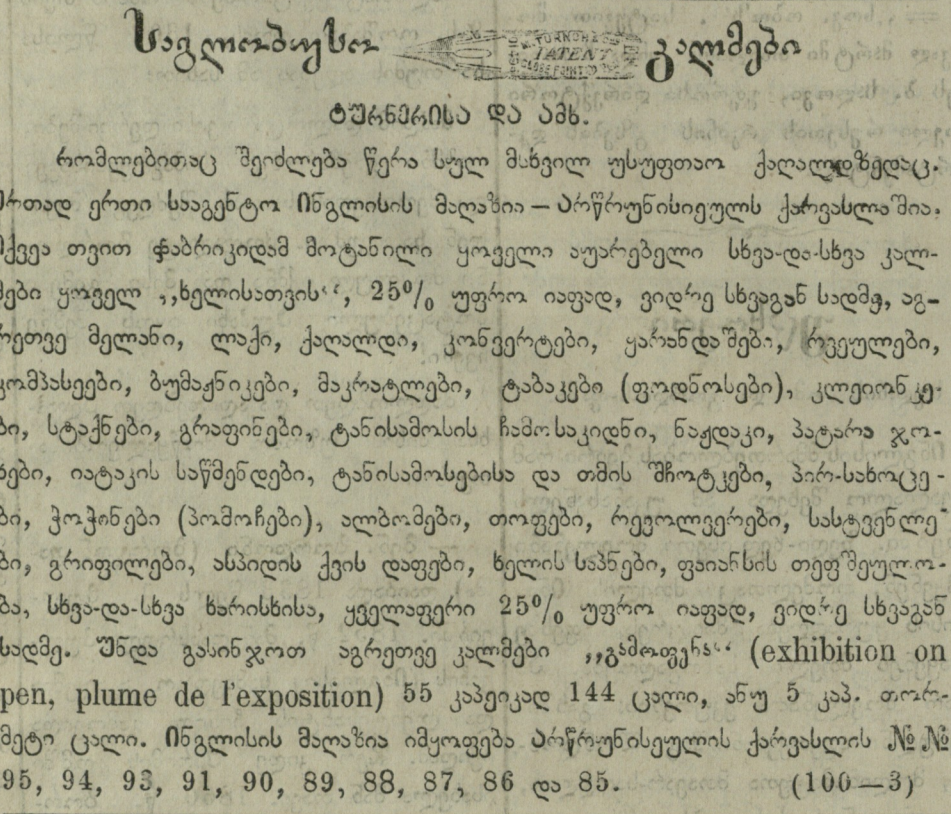 საგლობუსო PATENT კალმები
ტურნერისა და ამხ.
რომლებითაც შეიძლება წერა სულ მახვილ უსუფთაო ქაღალდზედაც.
ერთად ერთი სააგენტო ინგლისის მაღაზია — არწრუნისიეულს ქარვასლაშია.
აქვეა თვით ფაბრიკიდამ მოტანილი ყოველი აუარებელი სხვა-და-სხვა კალ-
მები ყოველ ,,ხელისათვის“, 25% უფრო იაფად, ვიდრე სხვაგან სადმე, აგ-
რეთვე მელანი, ლაქი, ქაღალდი, კონვერტები, ყარანდაშები, რვეულები,
კომპასეები, ბუმაჟნიკები, მაკრატლები, ტაბაკები (ფოდნოსები), კლეიონკე-
ბი, სტაქნები, გრაფინები, ტანისამოსის ჩამოსაკიდნი, ნაჟდაკი, პატარა ჯო-
ხები, იატაკის საწმენდები, ტანისამოსებისა და თმის შჩოტკები, პირ-სახოცე-
ბი, ჭოჭინები (პომოჩები), ალბომები, თოფები, რევოლვერები, სასტვენლე-
ბი, გრიფილები, ასპიდის ქვის დაფები, ხელის საპნები, ფაიანსის თეფშეულო-
ბა, სხვა-და-სხვა ხარისხისა, ყველაფერი 25% უფრო იაფად, ვიდრე სხვაგან
სადმე. უნდა გასინჯოთ აგრეთვე კალმები ,,გამოფენა“ (exhibition on
pen, plume de l'exposition) 55 კაპეიკად 144 ცალი, ანუ 5 კაპ. თორ-
მეტი ცალი. ინგლისის მაღაზია იმყოფება არწრუნისეულის ქარვასლის №№
95, 94, 93, 91, 90, 89, 88, 87, 86 და 85. (100—3)